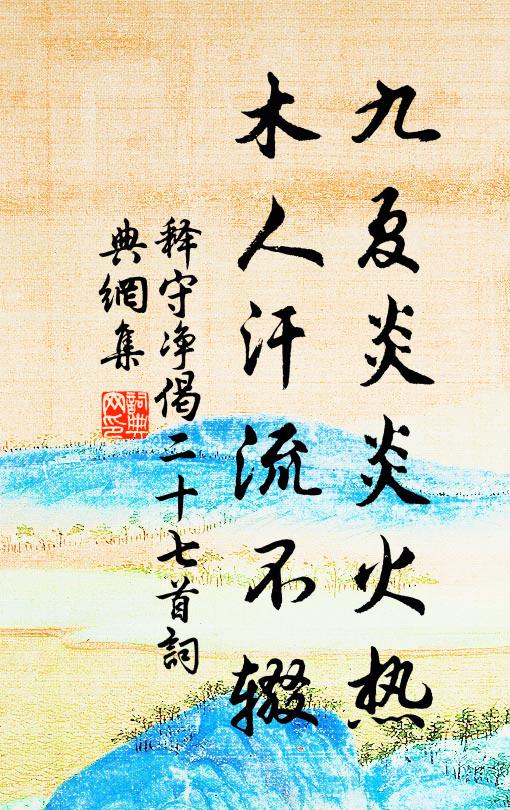 九夏炎炎火热
木人汗流不辍
释守净偈二十七首詞
典網集
詞典
网印